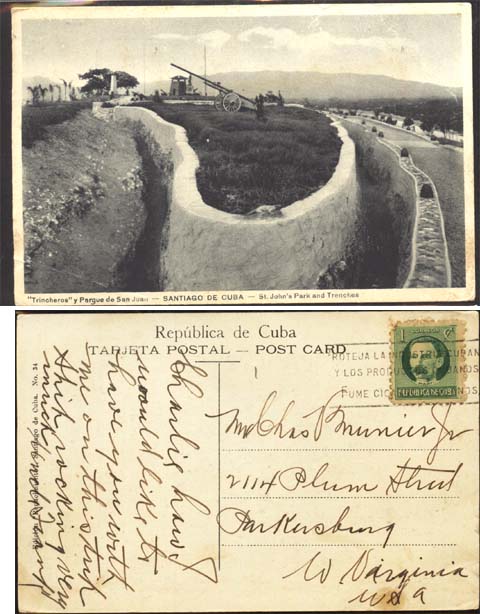 "Trincheros" y Parque de San Juan — SANTIAGO DE CUBA — St. John's Park and Trenches
República de Cuba
TARJETA POSTAL — POST CARD
PROTEJA LA INDUSTRIA CUBANA
Y LOS PRODUCTOS CUBANOS
FUME
1
1 ¢
REPUBLICA DE CUBA
Mr Chas Jr
2114 Plum Street
Parkersburg
W Virginia
USA
Charlie how I
would like to
have you with
me on this trip
Ship rocking very
much
de Cuba. No. 34